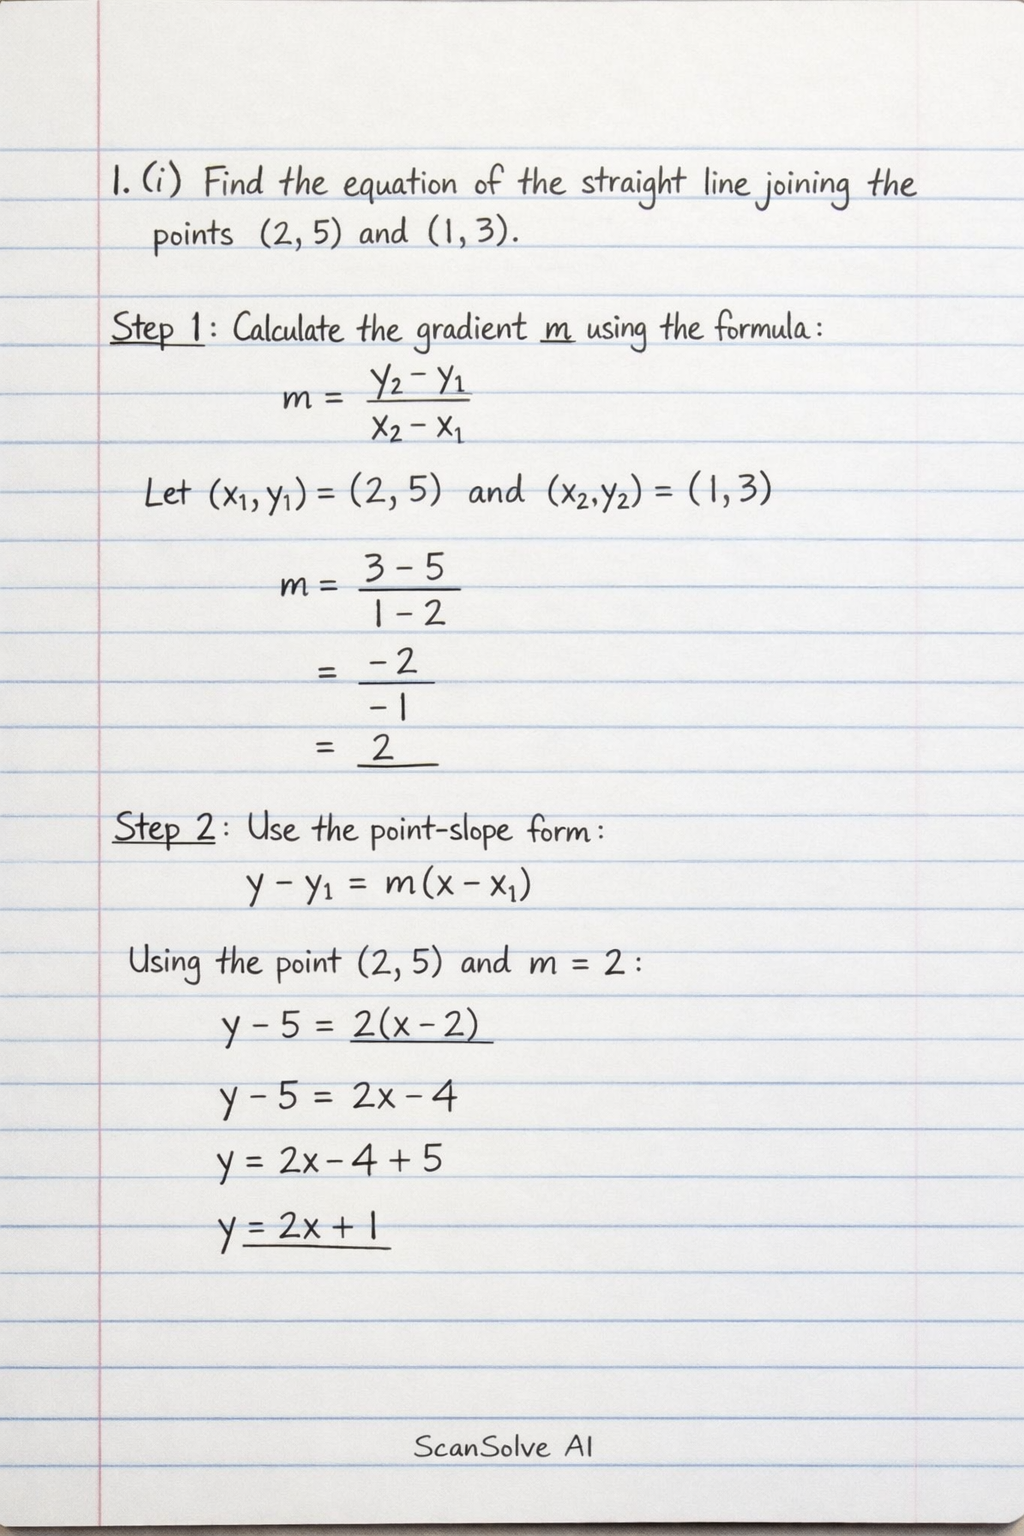 1. (i) Find the equation of the straight line joining the
points (2, 5) and (1, 3).
Step 1: Calculate the gradient m using the formula:
m = y₂ − y₁
x₂ − x₁
Let (x₁, y₁) = (2, 5) and (x₂, y₂) = (1, 3)
m = 3 − 5
1 − 2
= −2
−1
= 2
Step 2: Use the point-slope form:
y − y₁ = m(x − x₁)
Using the point (2, 5) and m = 2:
y − 5 = 2(x − 2)
y − 5 = 2x − 4
y = 2x − 4 + 5
y = 2x + 1
ScanSolve AI